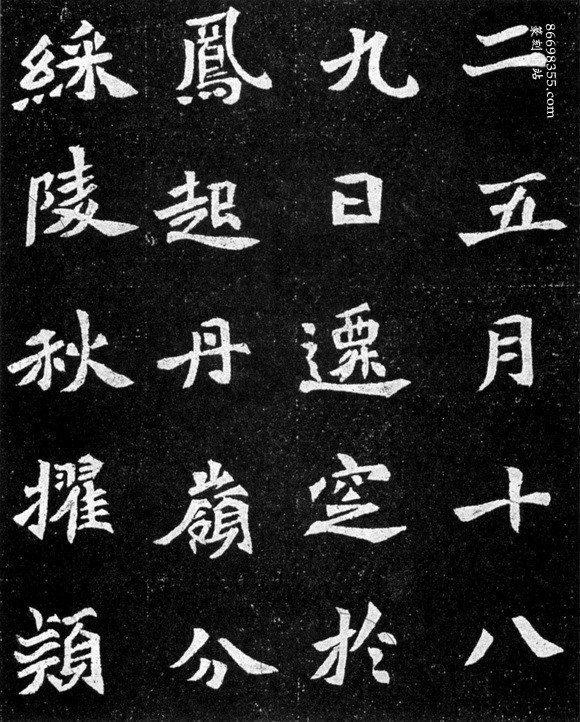 二五月十八
九日遷窆於
鳳起丹嶺分
綵陵秋擢頴
86698355.com
篆刻 站